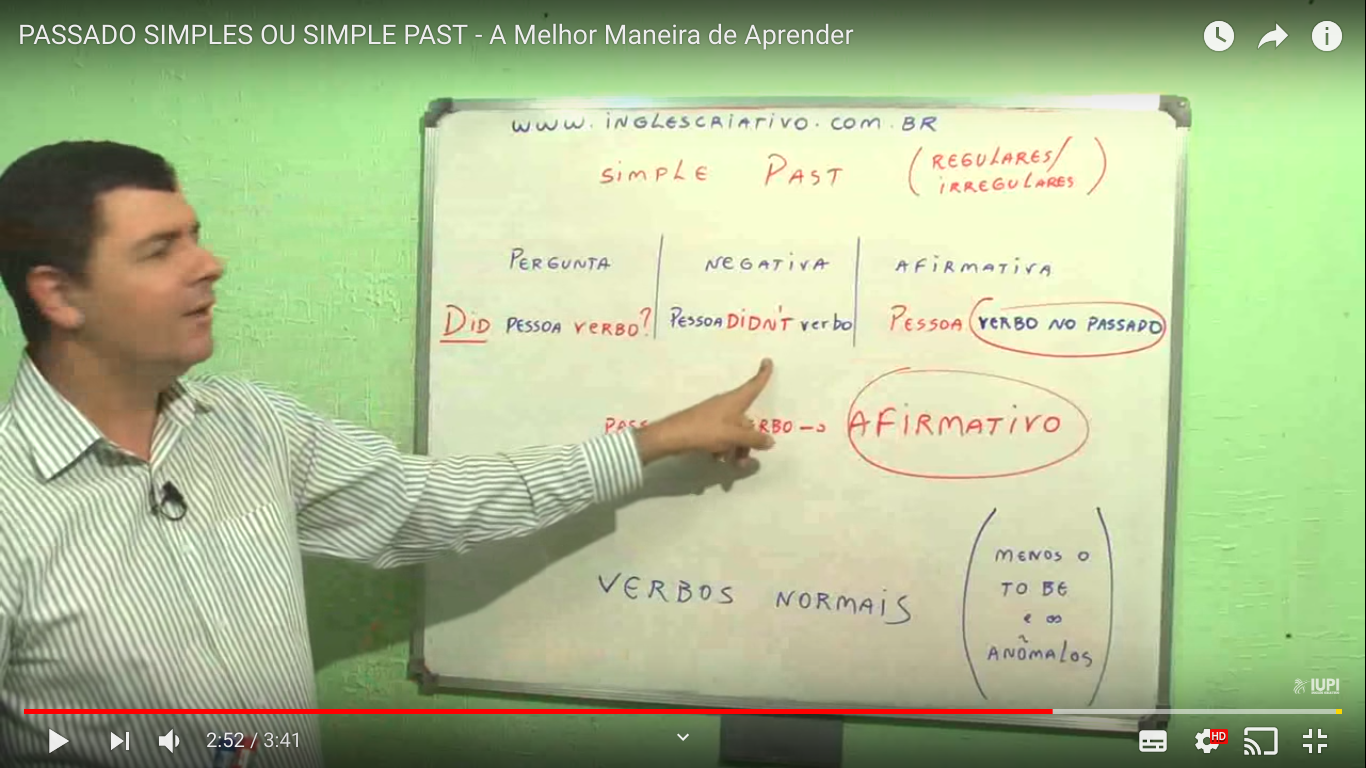 PASSADO SIMPLES OU SIMPLE PAST - A Melhor Maneira de Aprender
WWW.INGLESCRIATIVO.COM.BR
SIMPLE PAST (REGULARES/
IRREGULARES)
PERGUNTA NEGATIVA AFIRMATIVA
DID PESSOA VERBO? PESSOA DIDN'T verbo PESSOA VERBO NO PASSADO
AFIRMATIVO
VERBOS NORMAIS
(MENOS O
TO BE
e os
ANÔMALOS)
IUPI
2:52 / 3:41
HD